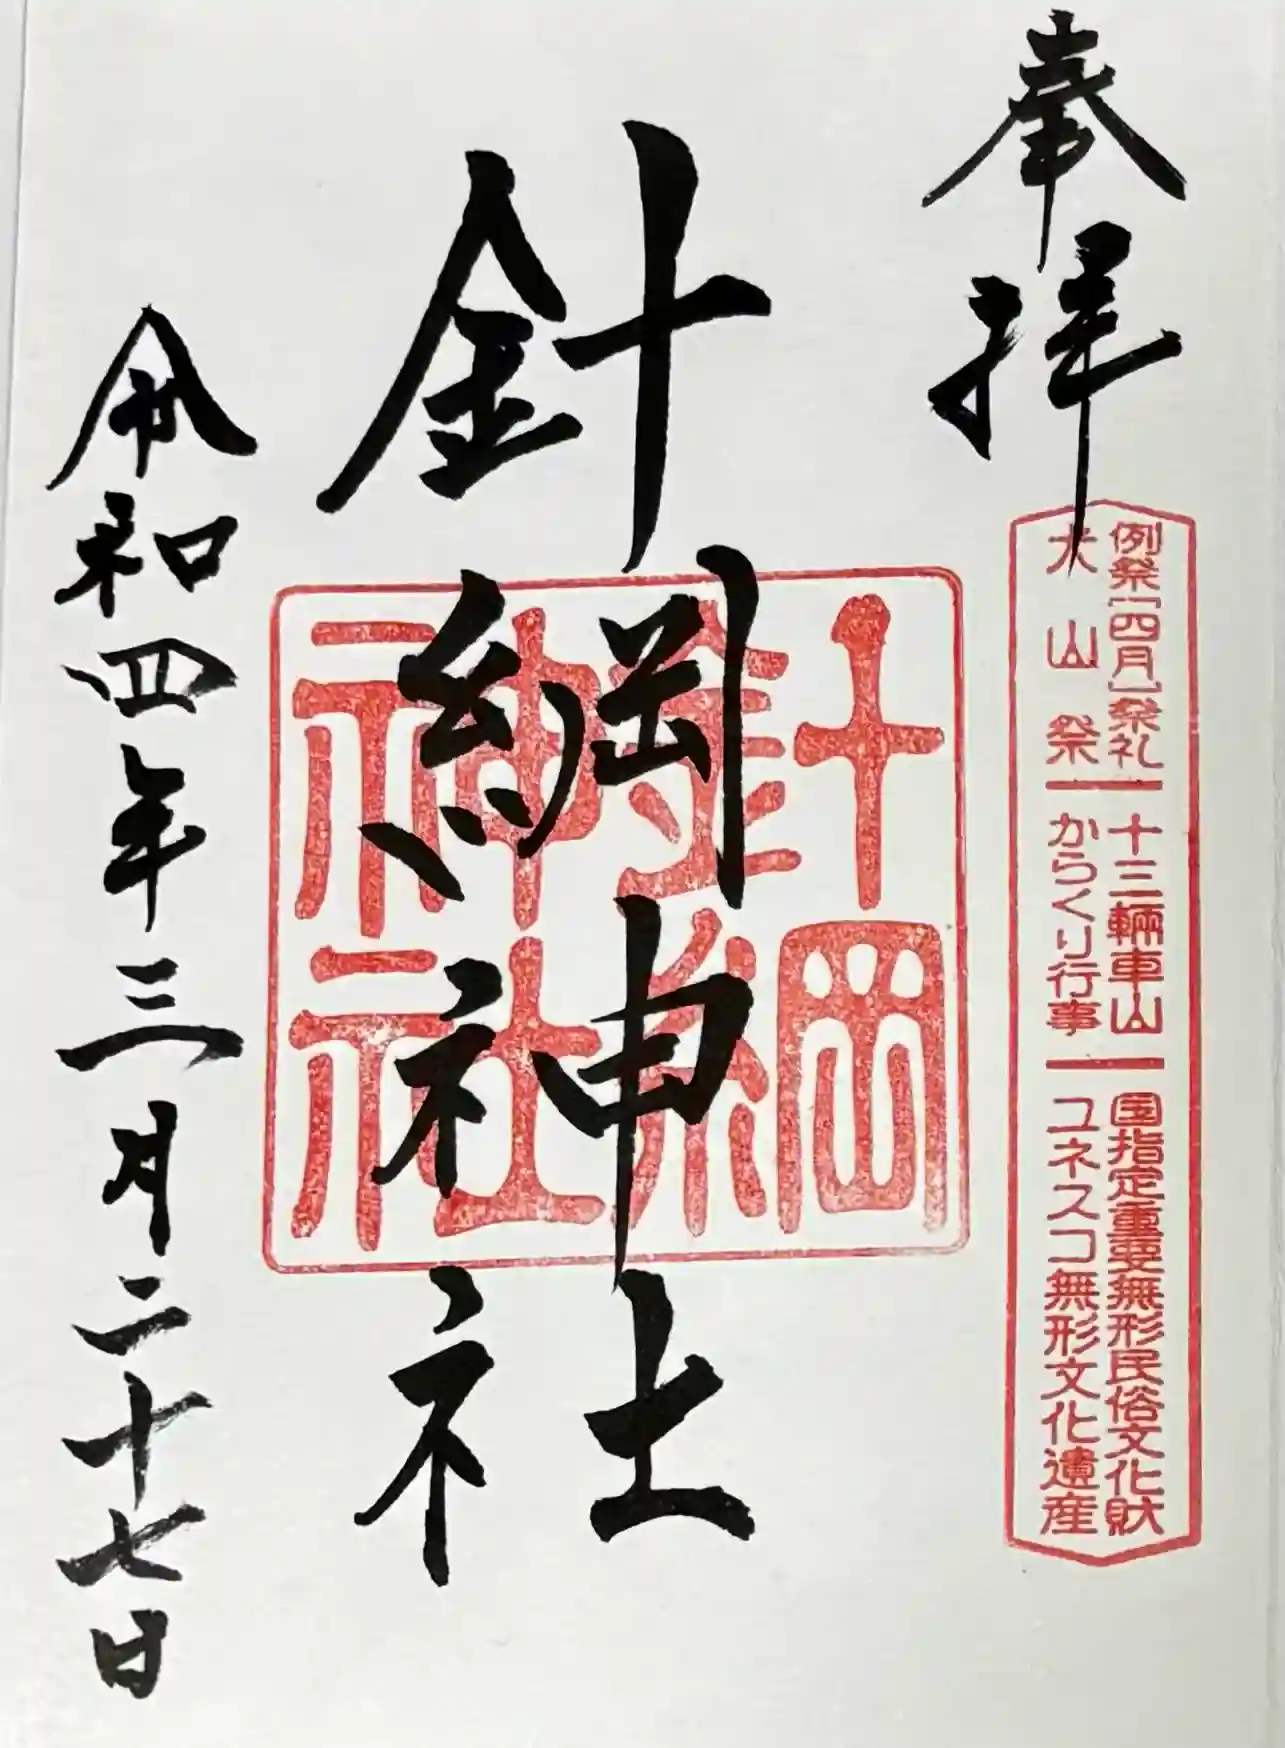 奉拝
例祭[四月]祭礼 十三輛車山 国指定重要無形民俗文化財
犬山祭 からくり行事 ユネスコ無形文化遺産
針綱神社
針綱
神社
令和四年三月二十七日